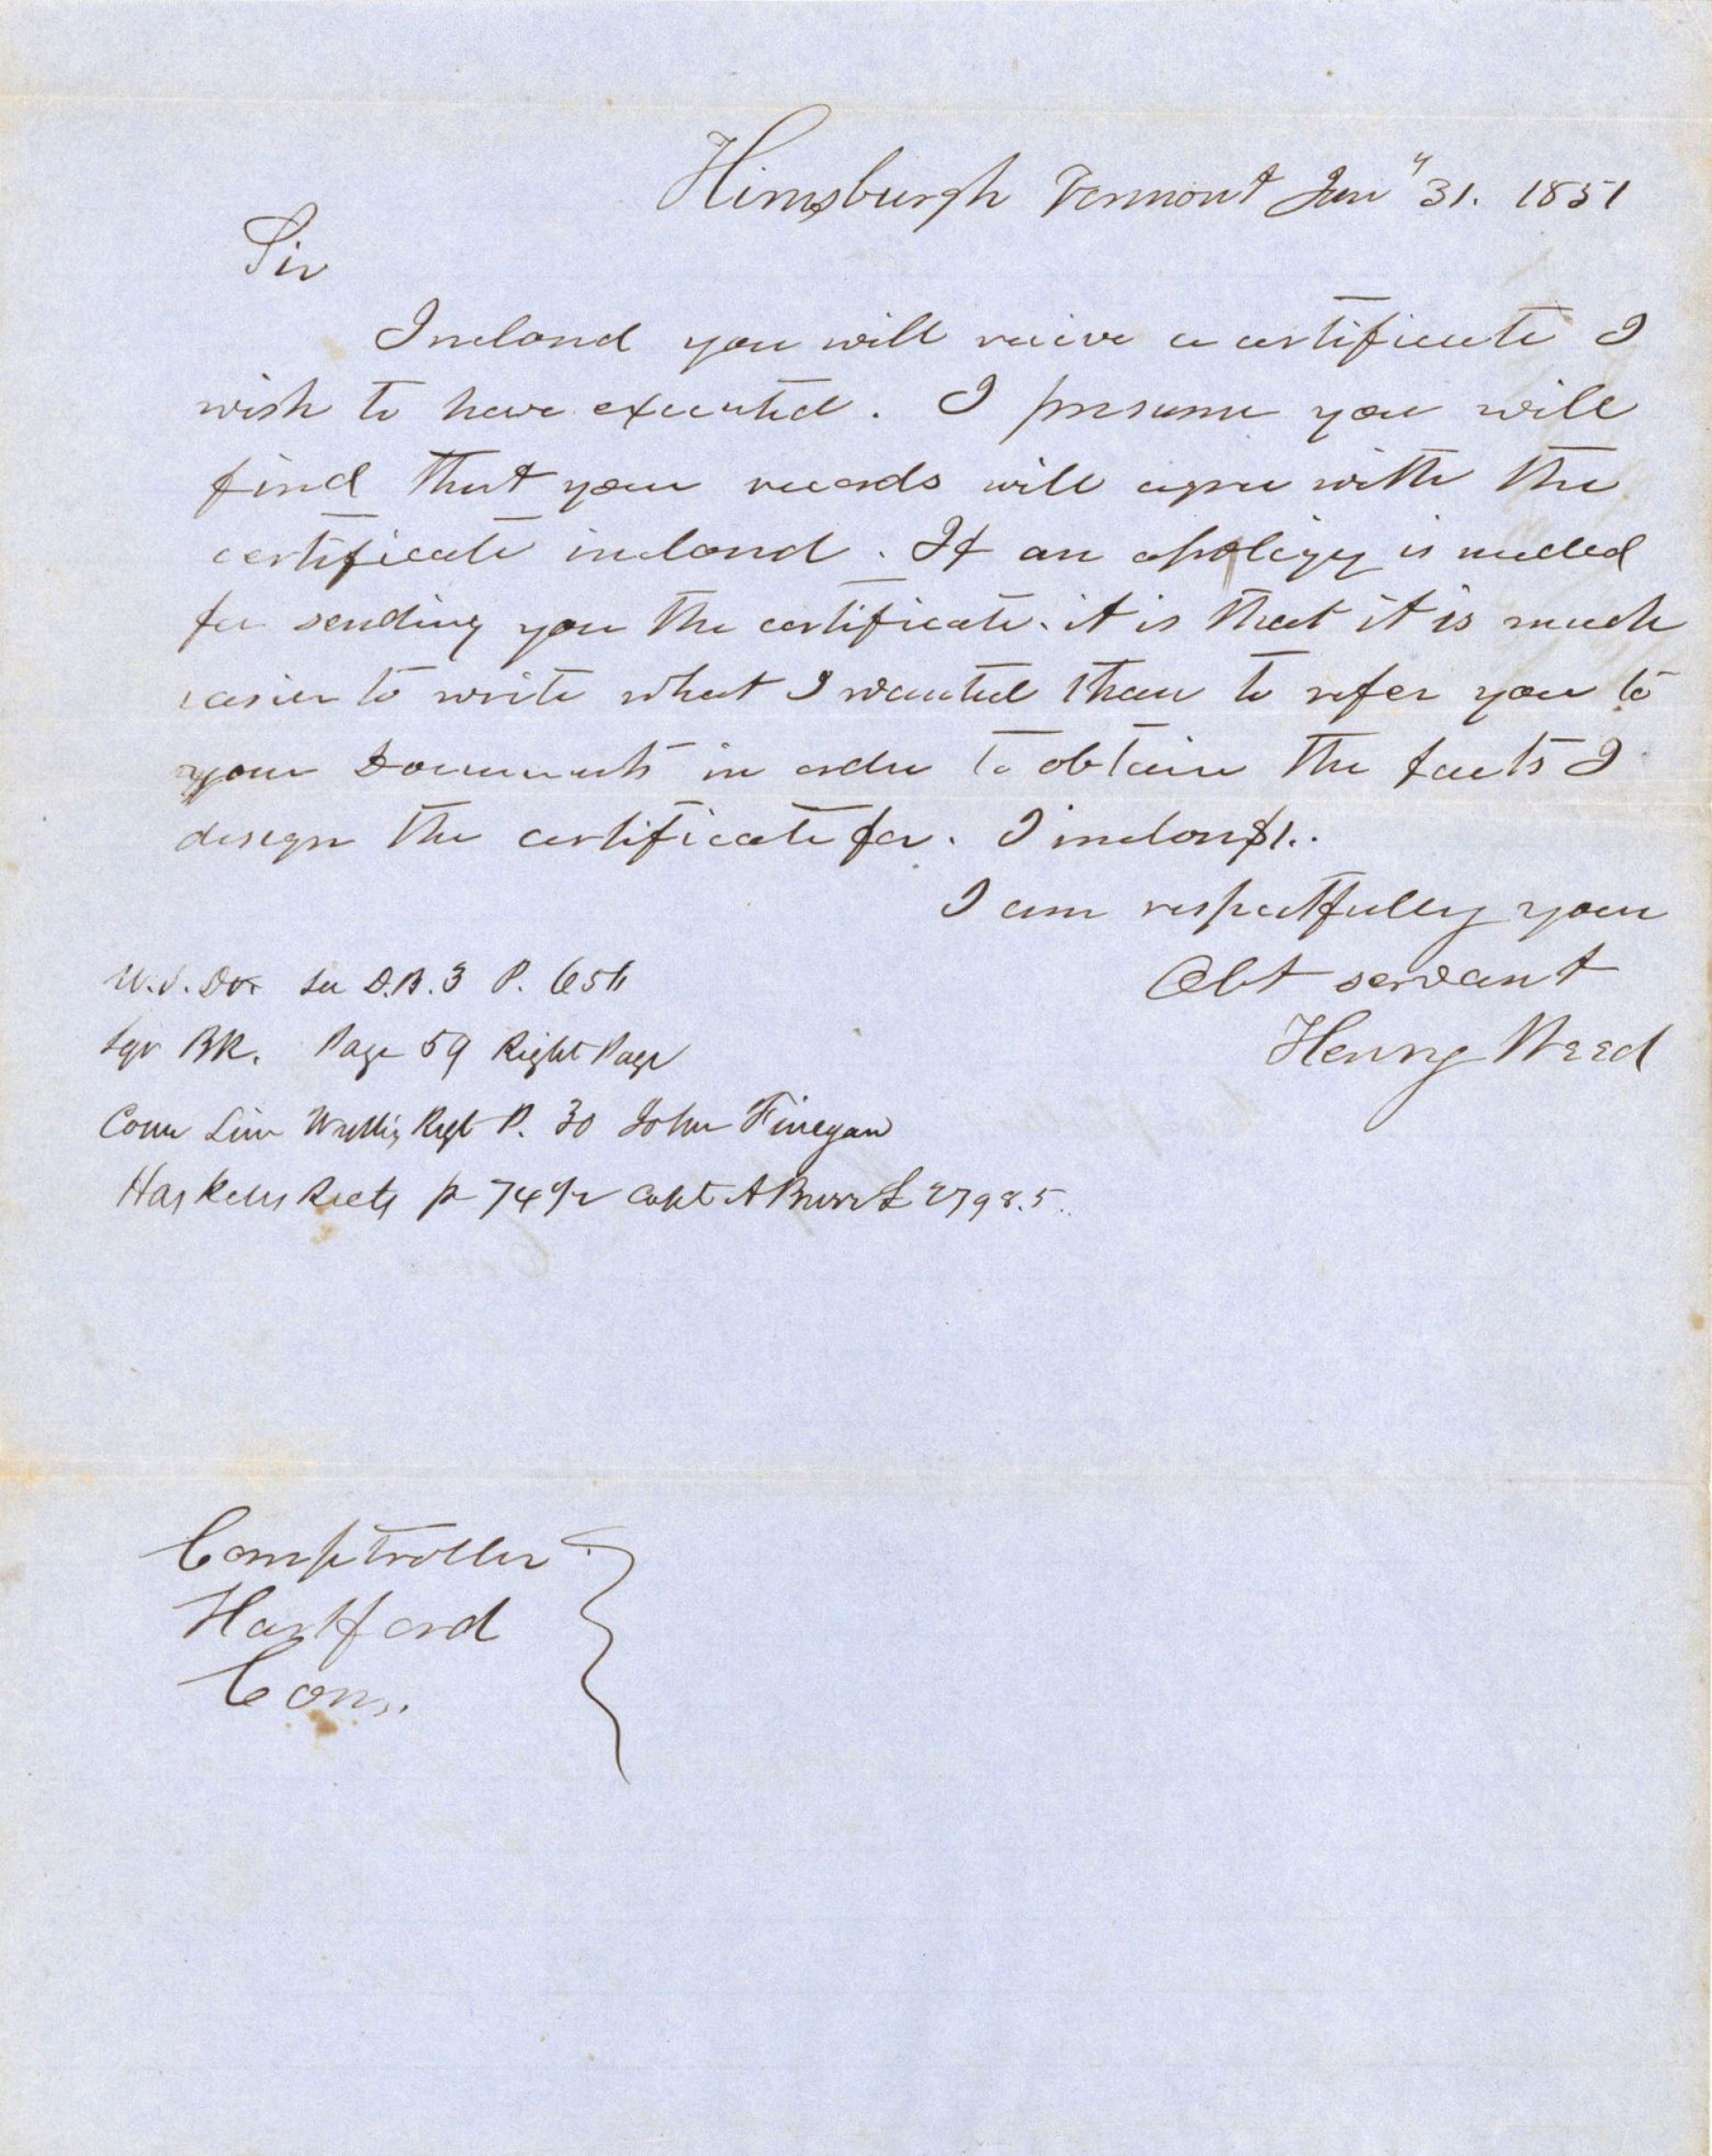 Hinesburgh Vermont Jany 31. 1851
Sir
Inclosed you will recieve a certificate I
wish to have executed. I presume you will
find that your records will agree with the
certificate inclosed. If an apology is needed
for sending you the certificate. it is that it is much
easier to write what I wanted than to refer you to
your Documents in order to obtain the facts I
design the certificate for. I inclose $1..
I am respectfully your
Obt servant
Henry Weed
D.B. 3 P. 656
BK. Page 59 Right Page
Conn Line Regt P. 30 John Finegan
Haskells Rects p 74 1/2 Capt A Burr £ 2798.5.
Comptroller
Hartford
Conn.